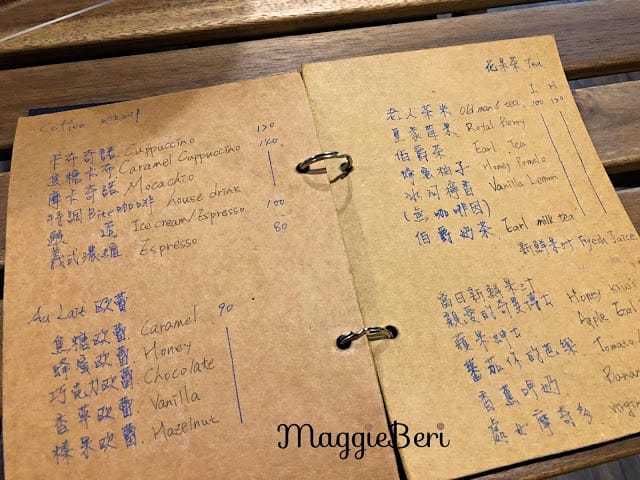 Coffee
卡布奇諾. Cuppuccino 120
焦糖卡布 Caramel Cappuccino 140
摩卡奇諾. Mocachio
特調 Bite 咖啡 house drink
Ice cream/Espresso 100
義式濃縮 Espresso 80
Au Lait 欧蕾
焦糖欧蕾. Caramel 90
蜂蜜欧蕾. Honey
巧克力欧蕾. Chocolate
香草欧蕾. Vanilla
榛果欧蕾. Hazelnut
花果茶 Tea
I H
老人茶米 Old man's tea. 100 120
莓果 Royal Berry
伯爵茶 Earl Tea
蜂蜜柚子 Honey Pomelo
冰河檸香 Vanilla Lemon
(無咖啡因)
伯爵奶茶. Earl milk tea
新鮮果汁 Fresh Juice
當日新鮮果汁
親愛的奇異博士 Honey kiwi
蘋果紳士 Apple Earl
番茄你的芭樂 Tomato
香蕉啤奶 Banan
處女摩奇多 Virgin
MaggieBeri